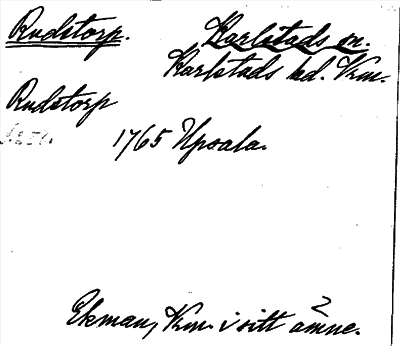 Rudstorp. Karlstads sn.
Karlstads hd. Vrm.
Rudstorp
1765 Upsala.
Ekman, Vrm. i sitt ämne.